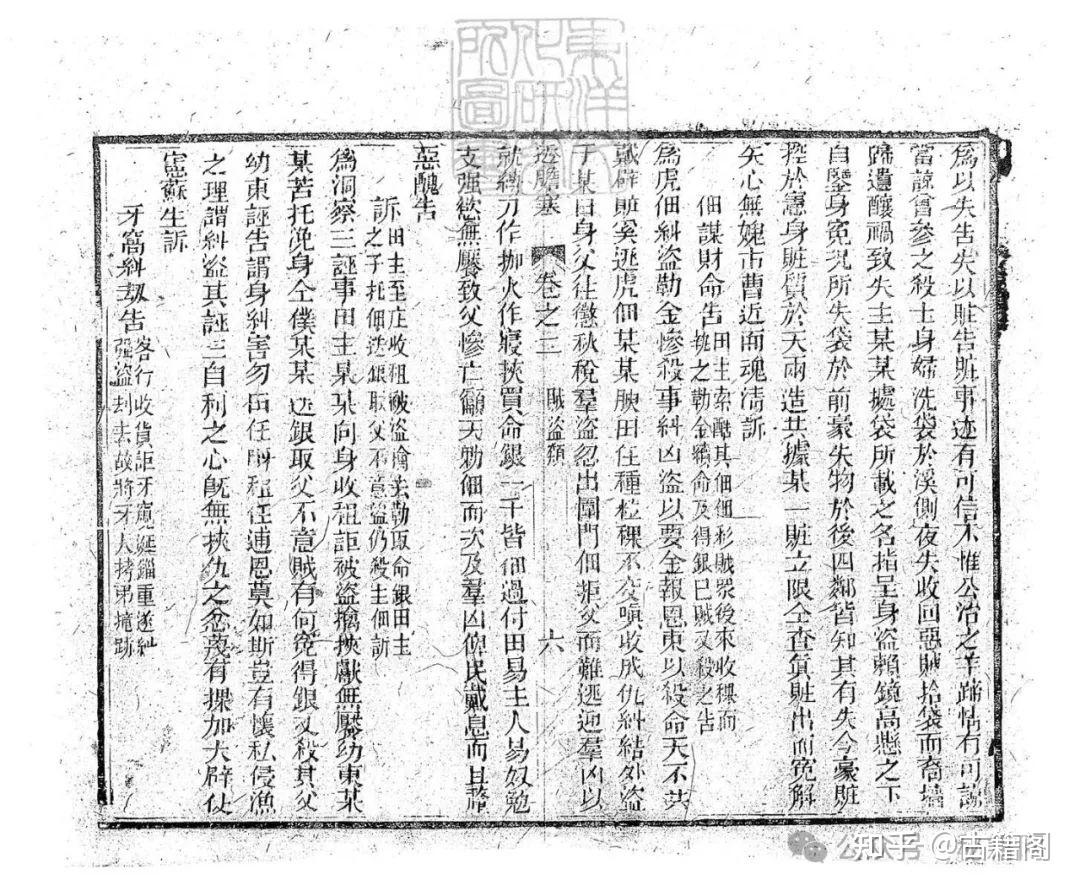 為以失告失以賍告賍事迹有可信不惟公治之羊蹄情有可諒
當諒曾參之殺士身婦洗袋於溪側夜失收回惡賊拾袋而裔墻
蹄遺釀禍致失主某某處袋所載之名指呈身盜賴鏡高懸之下
自鑒身冤况所失袋於前豪失物於後四鄰皆知其有失今豪賍
控於憲身賍質於天兩造共據某一賍立限仝查眞賍出而冤解
矢心無媿市曹近而魂濤訴
佃謀財命告
田主索酷其佃佃彩賊眾後來收稞而
執之勒金續命及得銀已賊又殺之告
為虎佃糾盜勒金慘殺事糾凶盜以要金報恩東以殺命天不共
戴辟賍奚逃虎佃某某腴田任種粒稞不交嗔收成仇糾結外盜
于某日身父往懲秋稅羣盜忽出圍門佃拒父而難逃迎羣凶以
透膽寒
卷之三
賊盜類
六
就縛刀作枷火作寢挾買命銀一千皆佃過付田易主人易奴勉
支强慾無饜致父慘亡籲天勦佃而次及羣凶俾民戴息而且降
惡醜告
訴
田主至庄收租被盜擒去勒取命銀田主
之子托佃送銀取父不意盜仍殺主佃訴
為洞察三誣事田主某某向身收租詎被盜擒挾獻無饜幼東某
某苦托浼身仝僕某某送銀取父不意賊有何寃得銀又殺其父
幼東誣告謂身糾害勿田任畊租任逋恩莫如斯豈有懷私侵漁
之理謂糾盜其誣三自利之心既無挾仇之忿蔑有捰加大辟仗
憲蘇生訴
牙窩糾刼告
客行收貨詎牙窺延錙重遂糾
强盜刦去故將牙人拷弔掩跡
東洋文化研究所圖書
公众号·古籍阁
知乎 @古籍阁